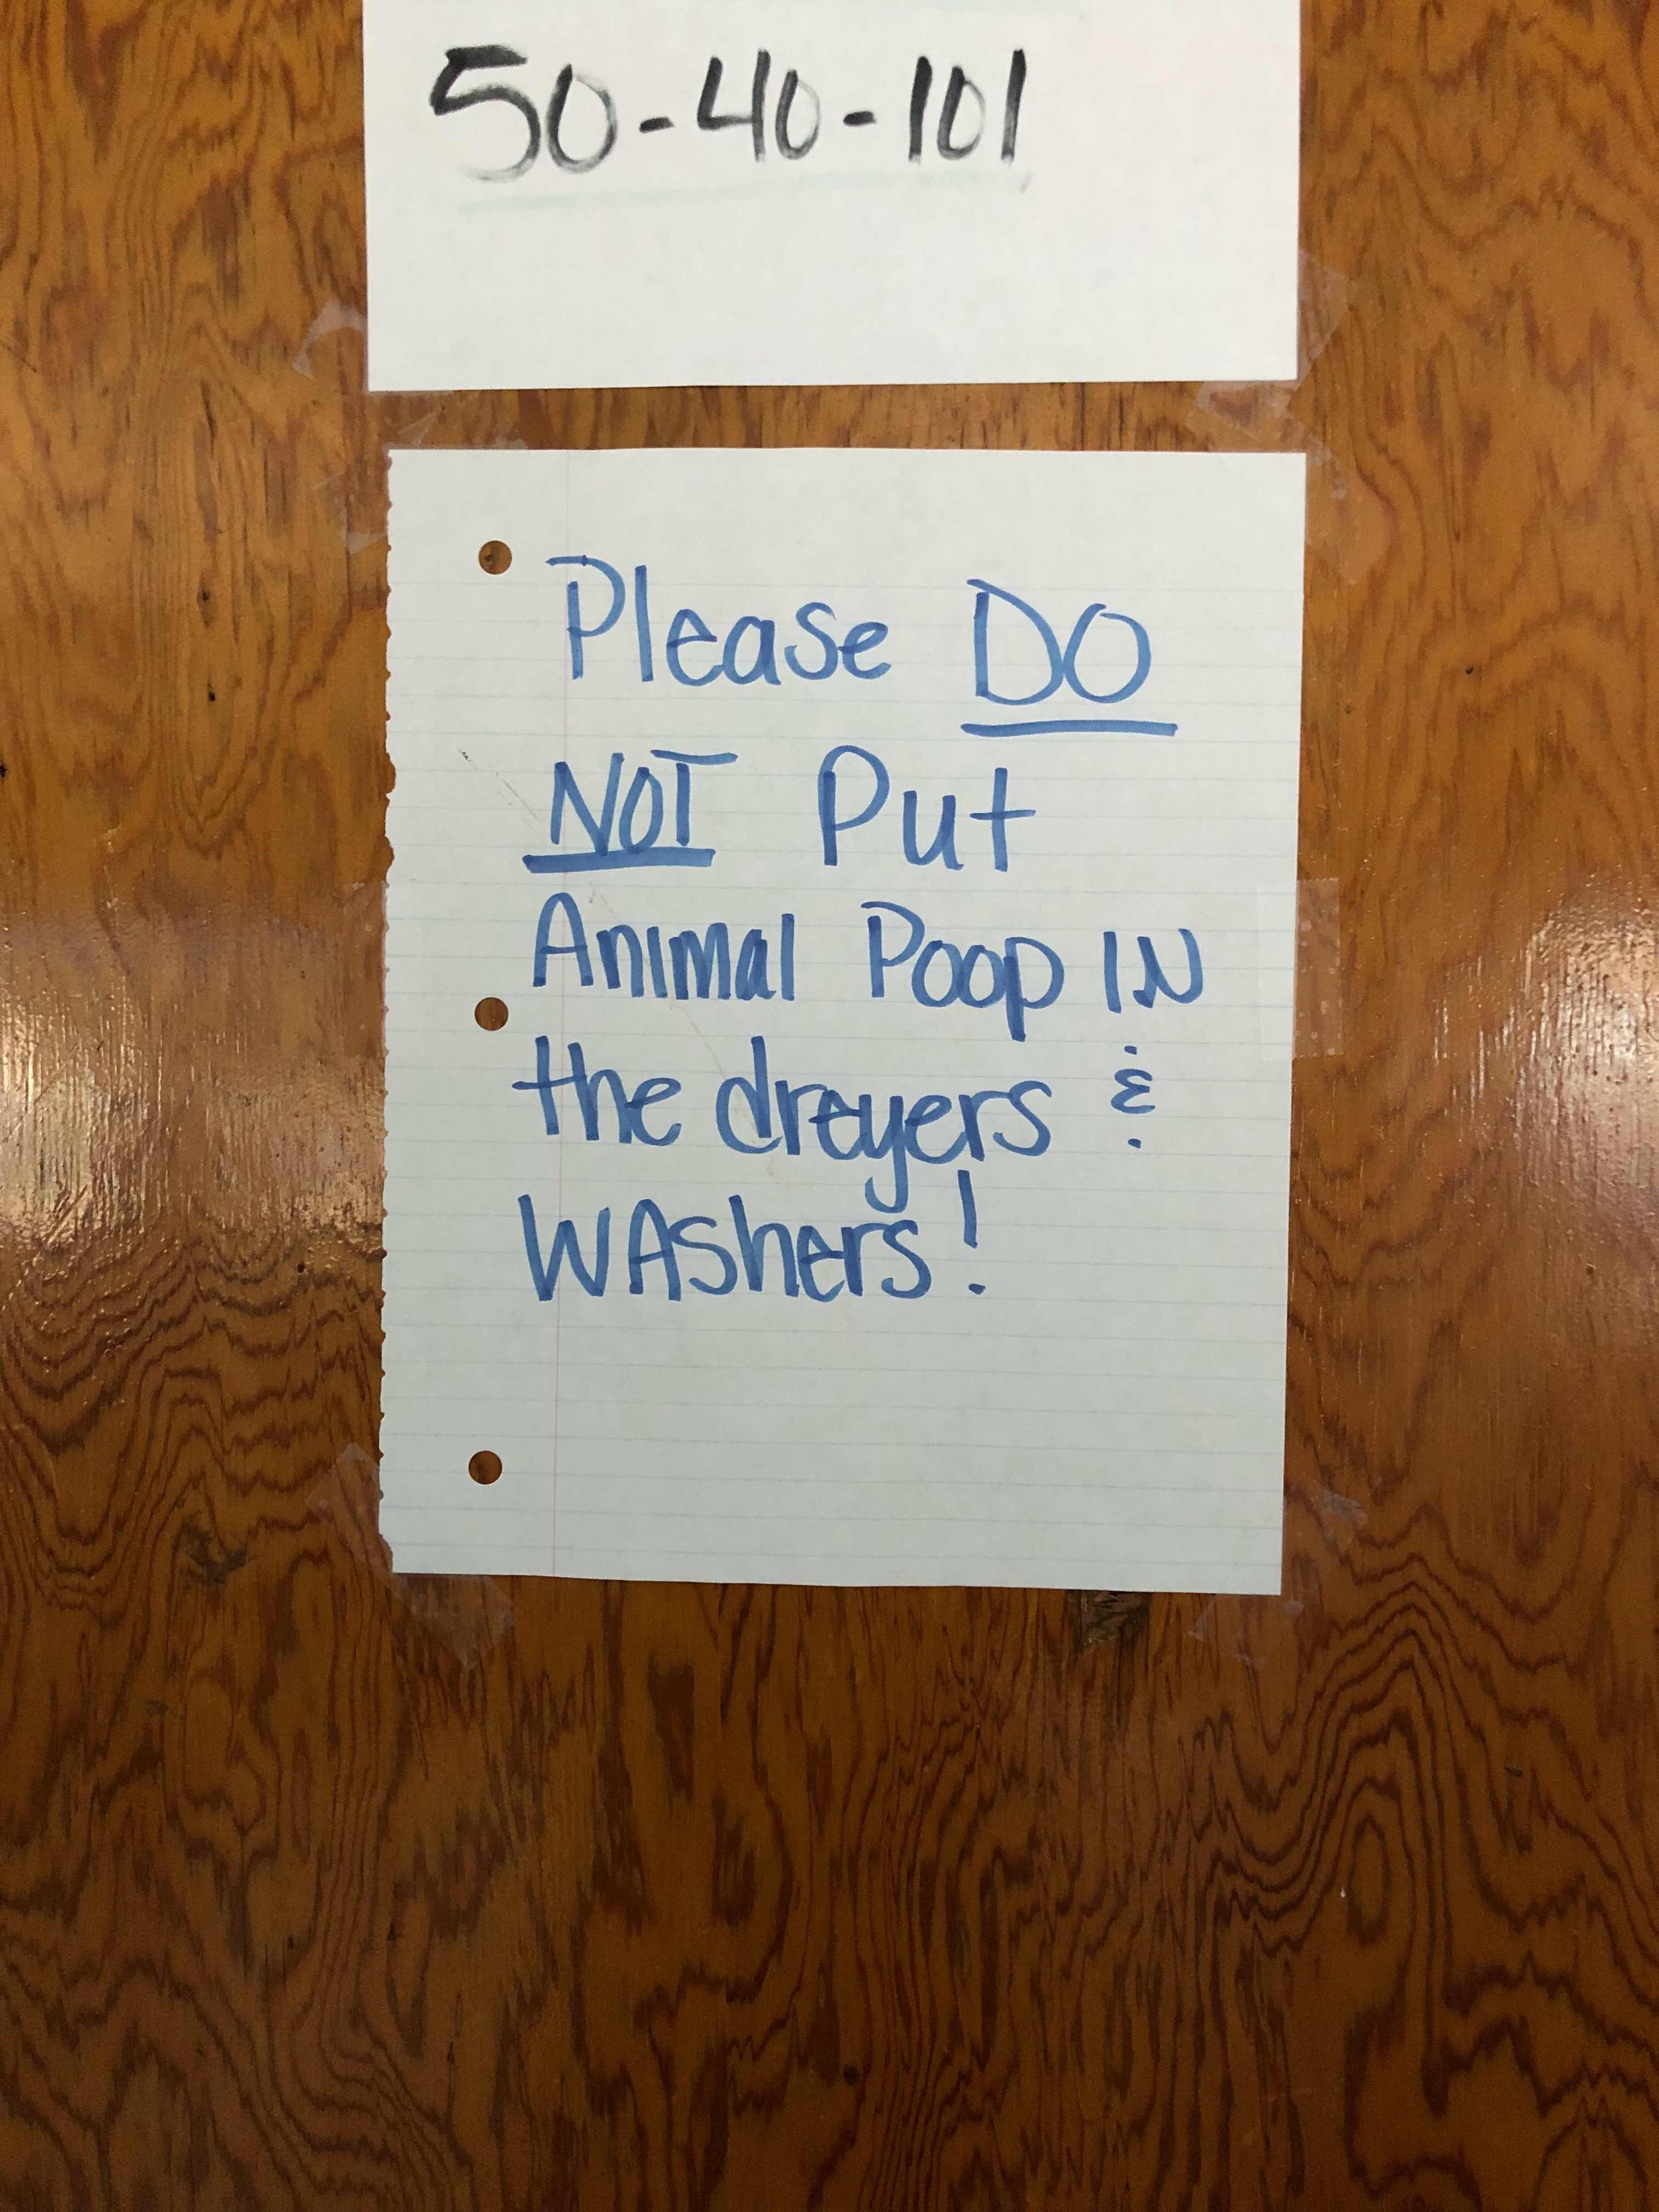 50-40-101
Please DO
NOT Put
Animal Poop IN
the dreyers &
WAShers!